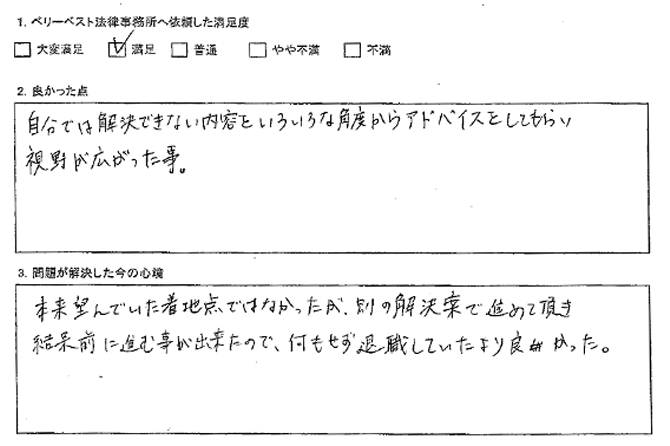 1. ベリーベスト法律事務所へ依頼した満足度
□ 大変満足 ☑ 満足 □ 普通 □ やや不満 □ 不満
2. 良かった点
自分では解決できない内容をいろいろな角度からアドバイスをしてもらい
視野が広がった事。
3. 問題が解決した今の心境
本来望んでいた着地点ではなかったが、別の解決案で進めて頂き
結果前に進む事が出来たので、何もせず退職していたより良かった。